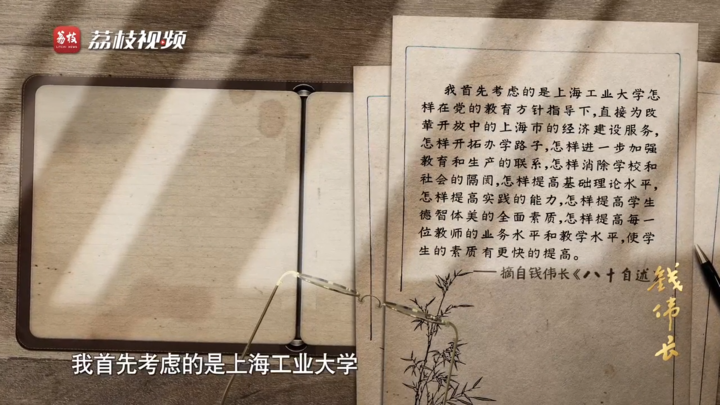 荔枝
荔枝视频
我首先考虑的是上海工业大学怎
样在党的教育方针指导下,直接为改
革开放中的上海市的经济建设服务,
怎样开拓办学路子,怎样进一步加强
教育和生产的联系,怎样消除学校和
社会的隔阂,怎样提高基础理论水平,
怎样提高实践的能力,怎样提高学生
德智体美的全面素质,怎样提高每一
位教师的业务水平和教学水平,使学
生的素质有更快的提高。
——摘自钱伟长《八十自述》
钱伟长
我首先考虑的是上海工业大学